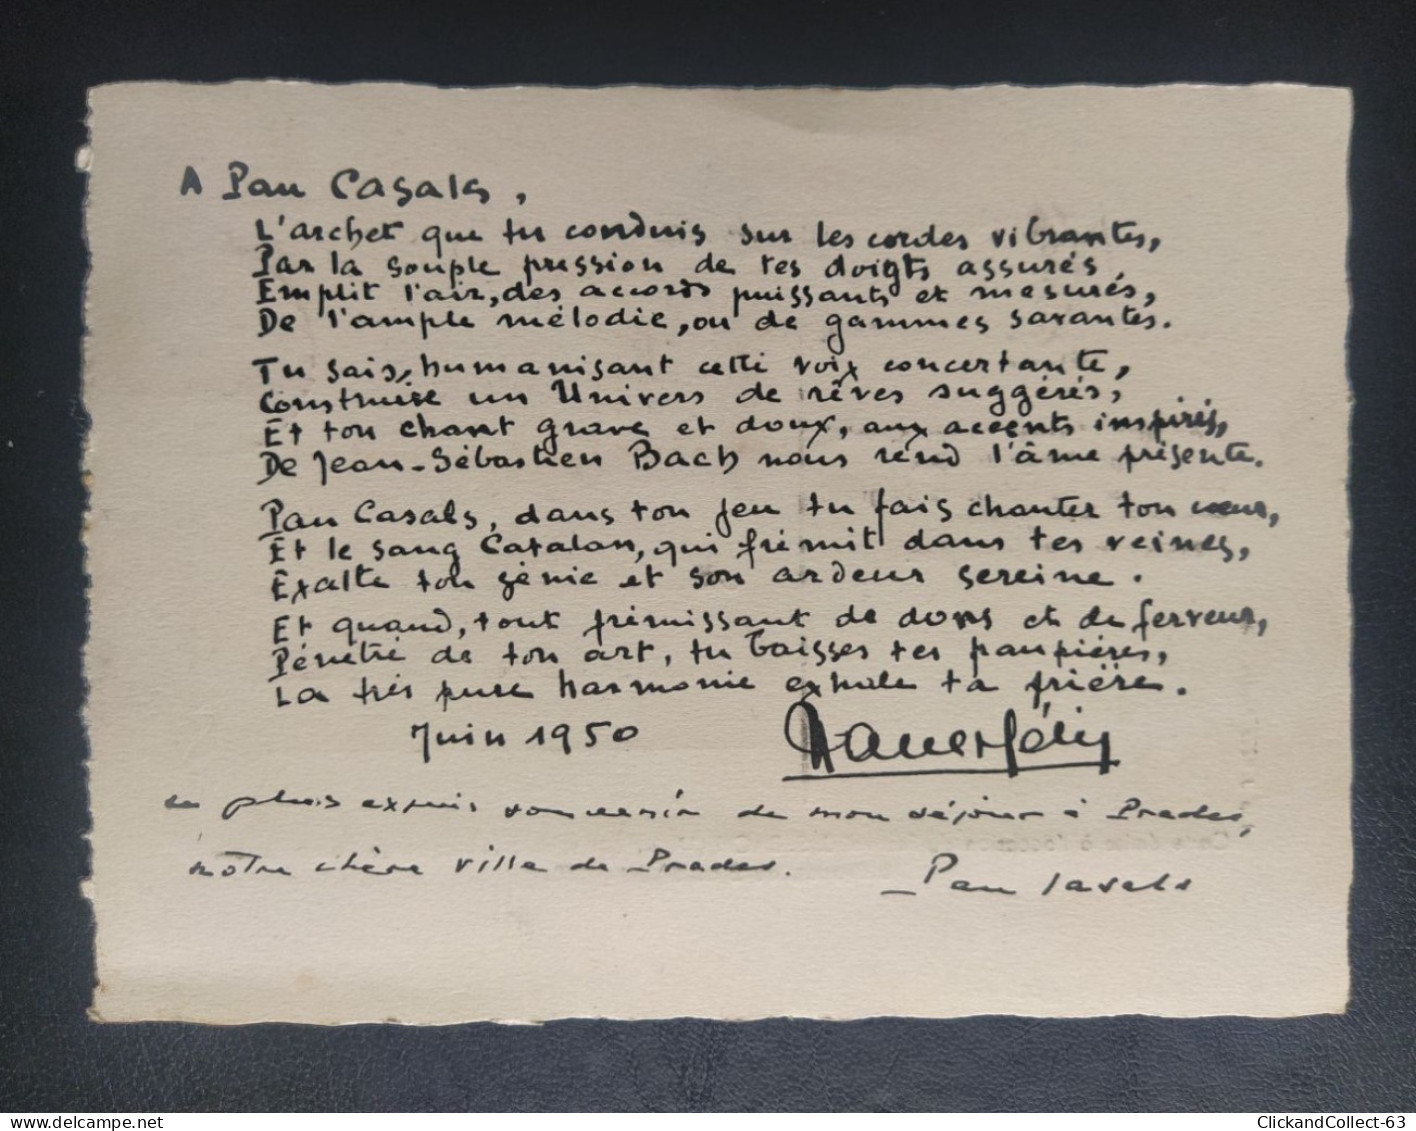 A Pau Casals,
L'archet que tu conduis sur les cordes vibrantes,
Par la souple pression de tes doigts assurés,
Emplit l'air, des accords puissants et mesurés,
De l'ample mélodie, ou de gammes savantes.
Tu sais, humanisant cette voix concertante,
Construire un Univers de rêves suggérés,
Et ton chant grave et doux, aux accents inspirés,
De Jean-Sébastien Bach nous rend l'âme présente.
Pau Casals, dans ton jeu tu fais chanter ton cœur,
Et le sang Catalan, qui frémit dans tes veines,
Exalte ton génie et son ardeur sereine.
Et quand, tout frémissant de dons et de ferveur,
Pénétré de ton art, tu baisses tes paupières,
La très pure harmonie exhale ta prière.
Juin 1950
plus exquis souvenir de mon séjour à Prades,
notre chère ville de Prades.
Pau Casals
delcampe.net
ClickandCollect-63